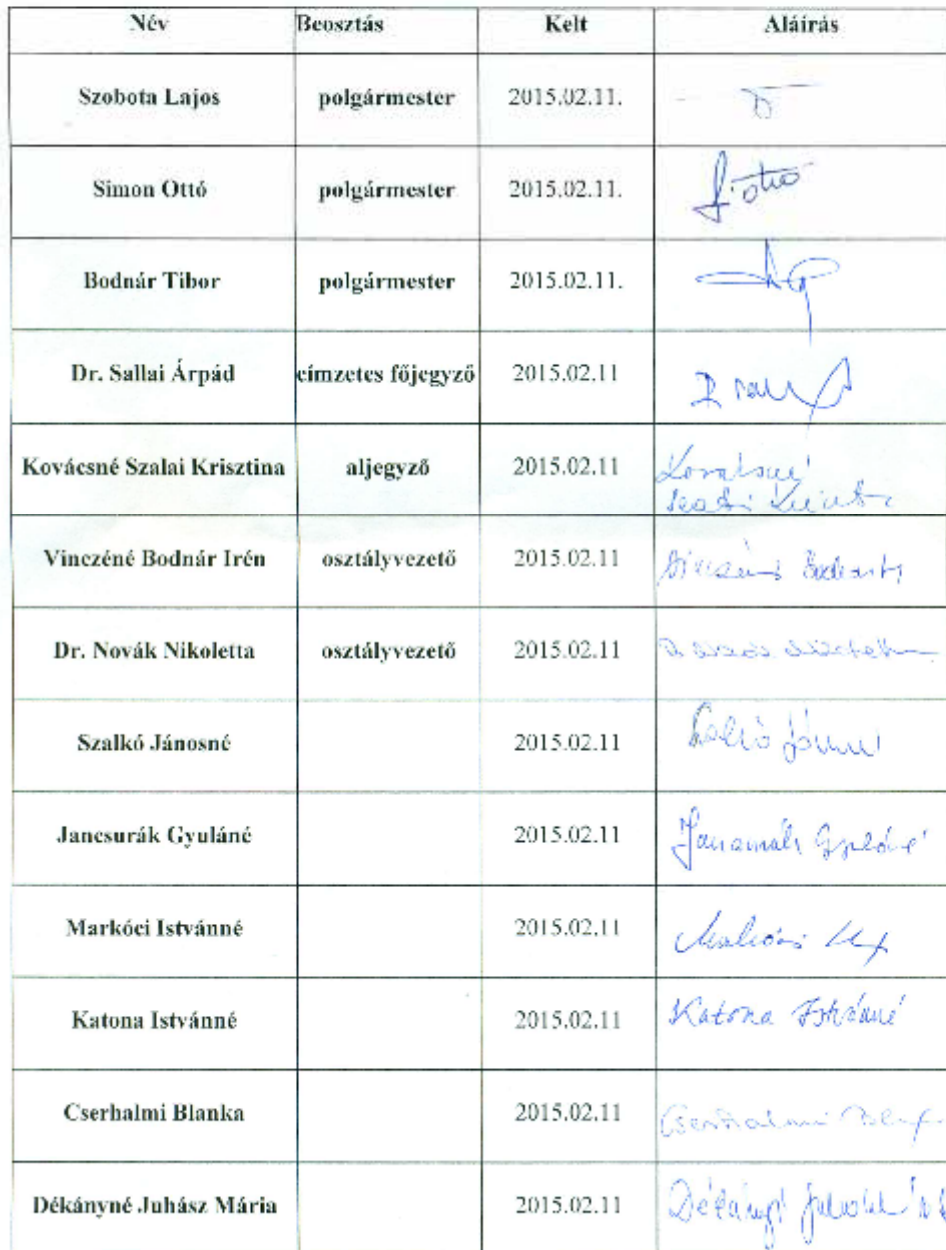 Név Beosztás Kelt Aláírás
Szobota Lajos polgármester 2015.02.11.
Simon Ottó polgármester 2015.02.11.
Bodnár Tibor polgármester 2015.02.11.
Dr. Sallai Árpád címzetes főjegyző 2015.02.11
Kovácsné Szalai Krisztina aljegyző 2015.02.11 Kovácsné
Vinczéné Bodnár Irén osztályvezető 2015.02.11
Dr. Novák Nikoletta osztályvezető 2015.02.11
Szalkó Jánosné 2015.02.11 Szalkó Jánosné
Jancsurák Gyuláné 2015.02.11 Jancsurák Gyuláné
Markóci Istvánné 2015.02.11
Katona Istvánné 2015.02.11 Katona Istvánné
Cserhalmi Blanka 2015.02.11 Cserhalmi
Dékányné Juhász Mária 2015.02.11